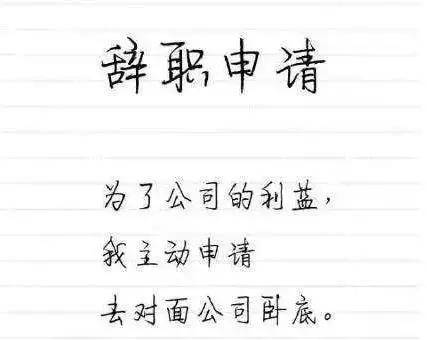 辞职申请
为了公司的利益,
我主动申请
去对面公司卧底。